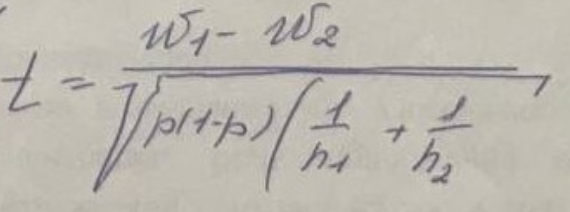 t = \frac{w_1 - w_2}{\sqrt{p(1-p)\left(\frac{1}{n_1} + \frac{1}{n_2}\right.}}